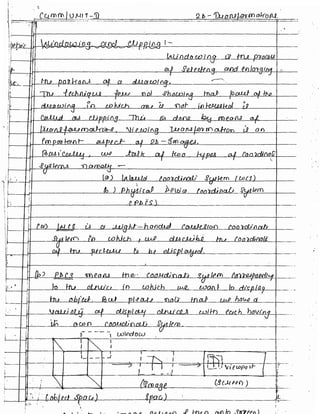 Comm / UNIT-II 2D-Transformations
Topic
Windowing and clipping :-
Windowing is the process
of selecting and enlarging
the portions of a drawing.
The technique for not showing that part of the
drawing in which one is not interested is
called as clipping. This is done by means of
transformations. Viewing Transformation is an
important aspect of 2D-Images.
Basically, we talk of two types of coordinate
systems namely -
(a) World Coordinate System (WCS)
(b) Physical Device Coordinate System
(PDCS)
(a) WCS is a right-handed Cartesian coordinate
System in which, we describe the coordinate
of the picture to be displayed.
(b) PDCS means the coordinate system corresponding
to the device in which we want to display
the object. But please note that we have a
variety of display devices with each having
its own coordinate system.
window
Viewport
(Image (Screen)
(object space) space)